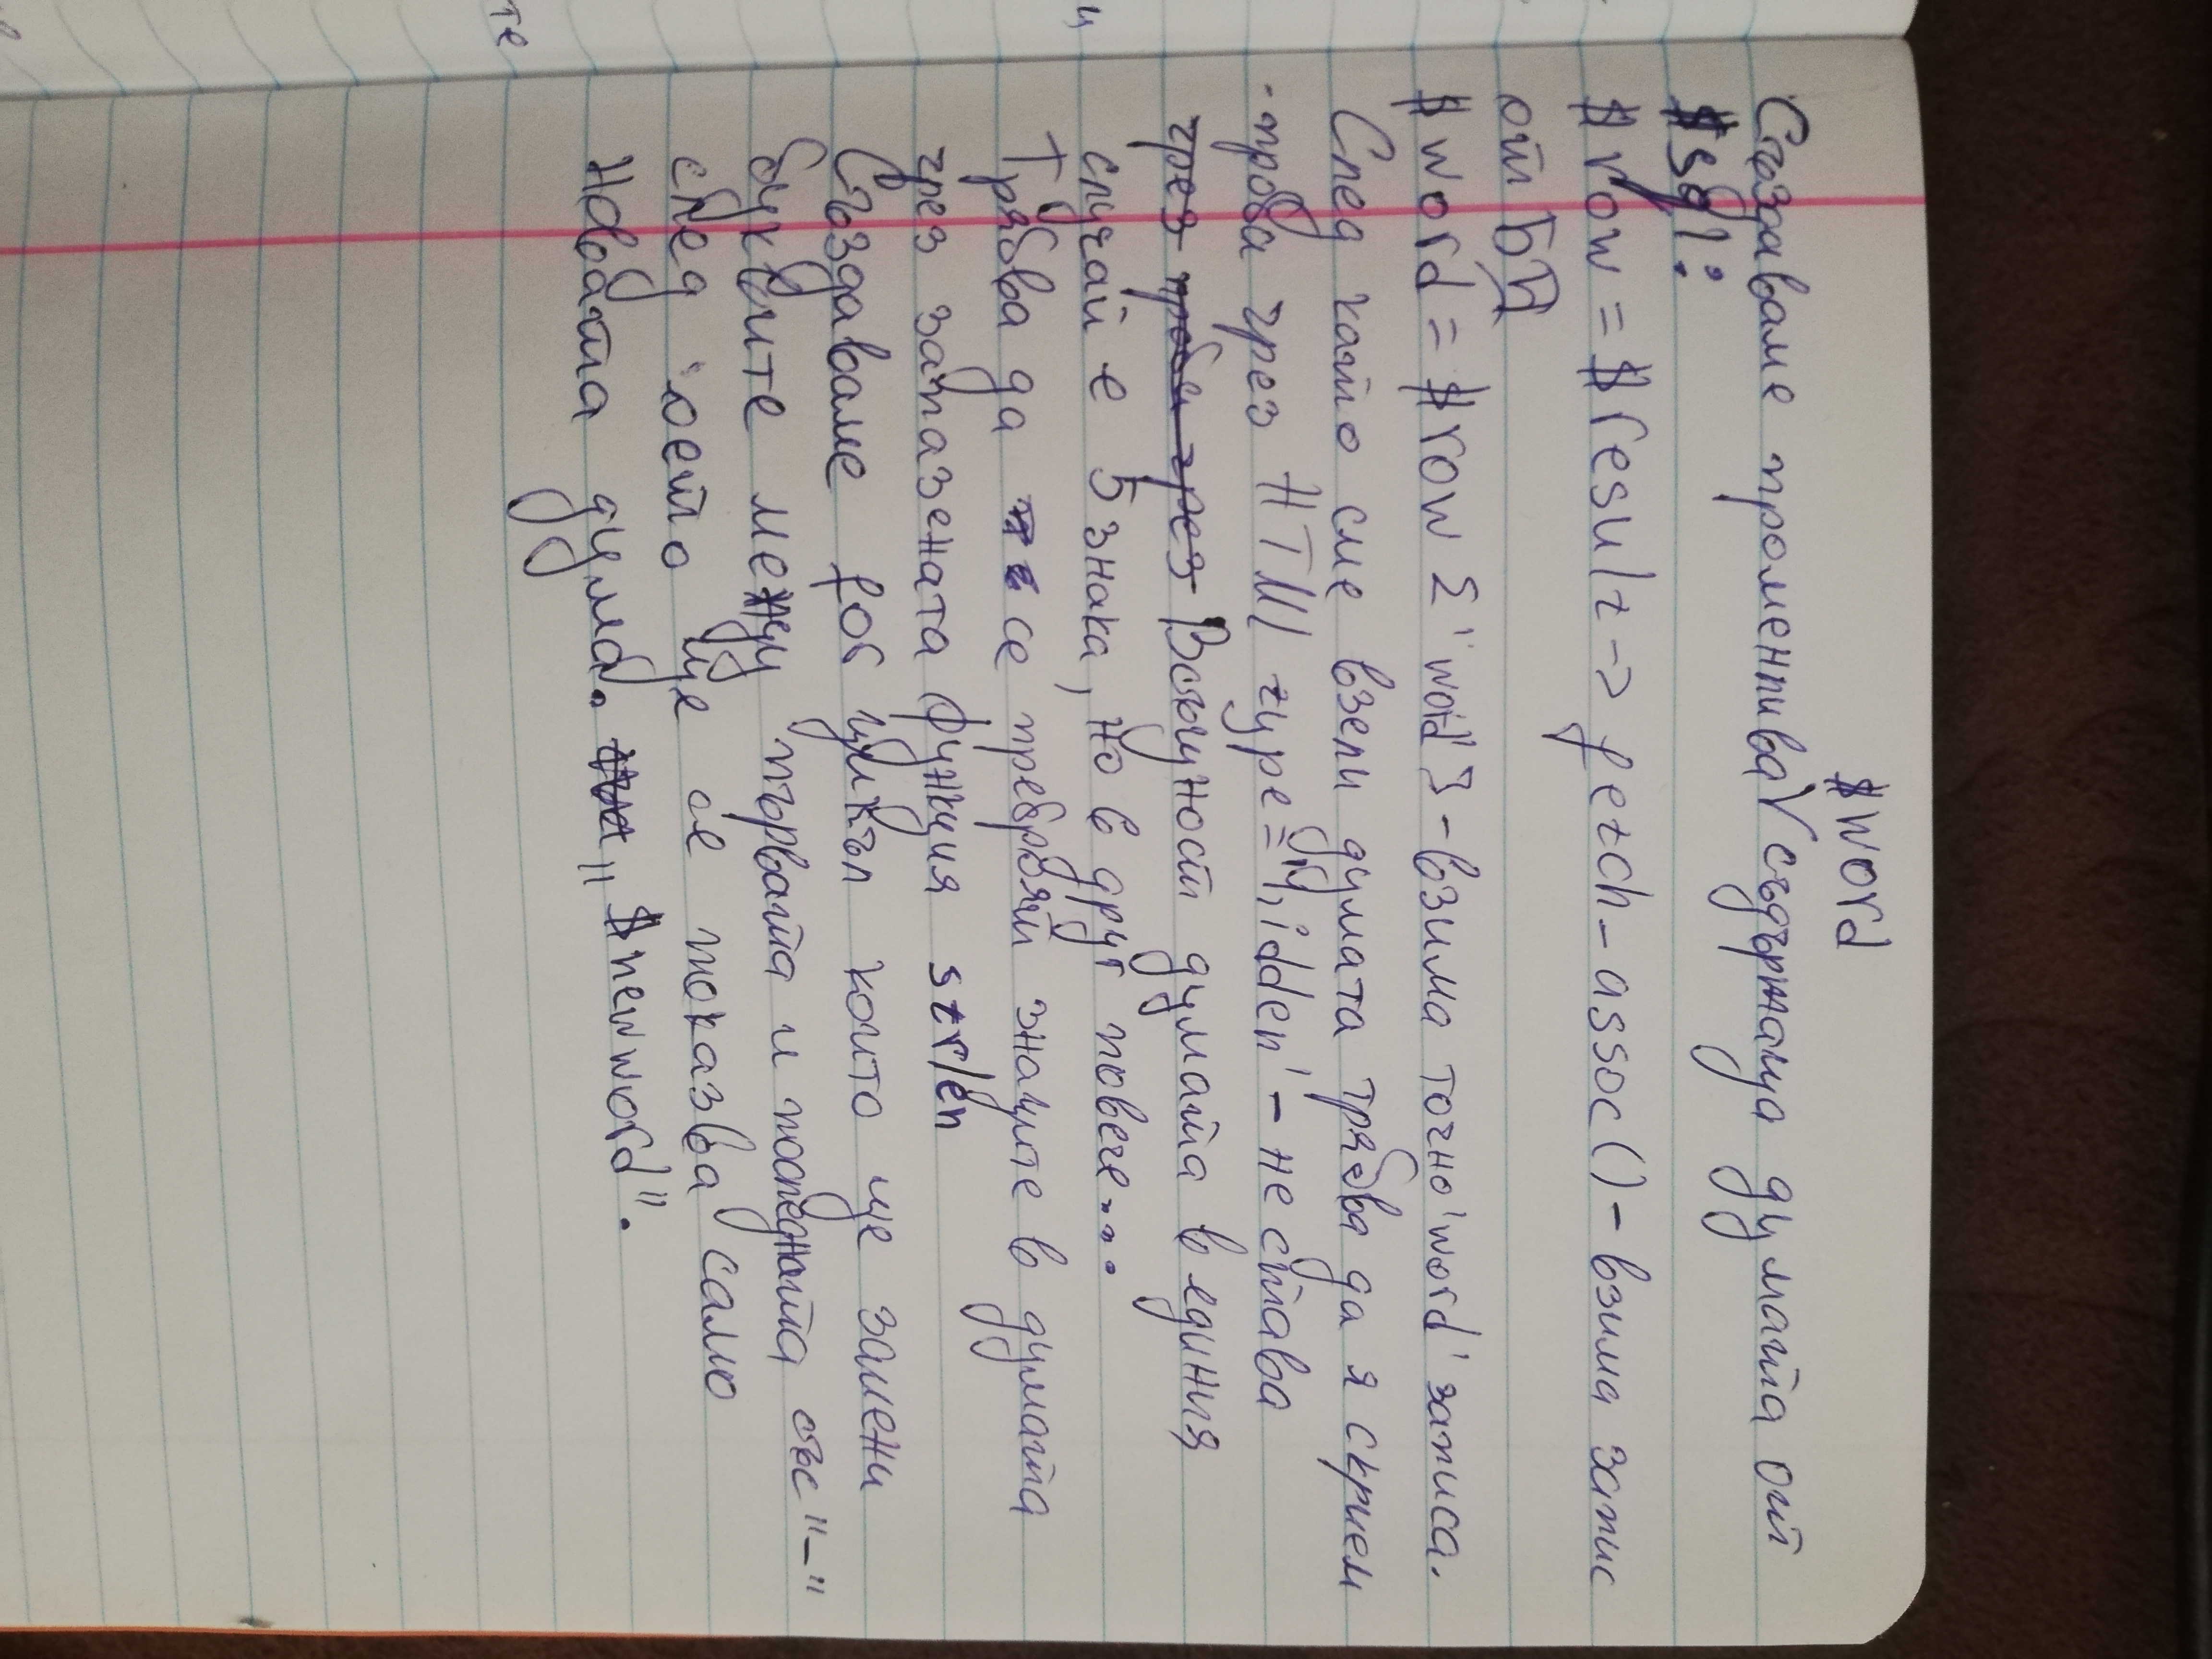 $word
Създаваме променлива √ съдържаща думата от
$sql:
$row = $result -> fetch_assoc() - взима запис
от БД
$word = $row ['word'] - взима точно 'word' записа.
След като сме взели думата трябва да я скрием
- проба чрез HTMl type = 'hidden' - не става
чрез проба чрез Всъщност думата в единия
случай е 5 знака, но в друг повече....
Трябва да се преброят знаците в думата
чрез запазената функция strlen
Създаваме for цикъл който ще замени
буквите между първата и последната със "_"
след което ще се показва само
Новата дума. "$newword".
те
и